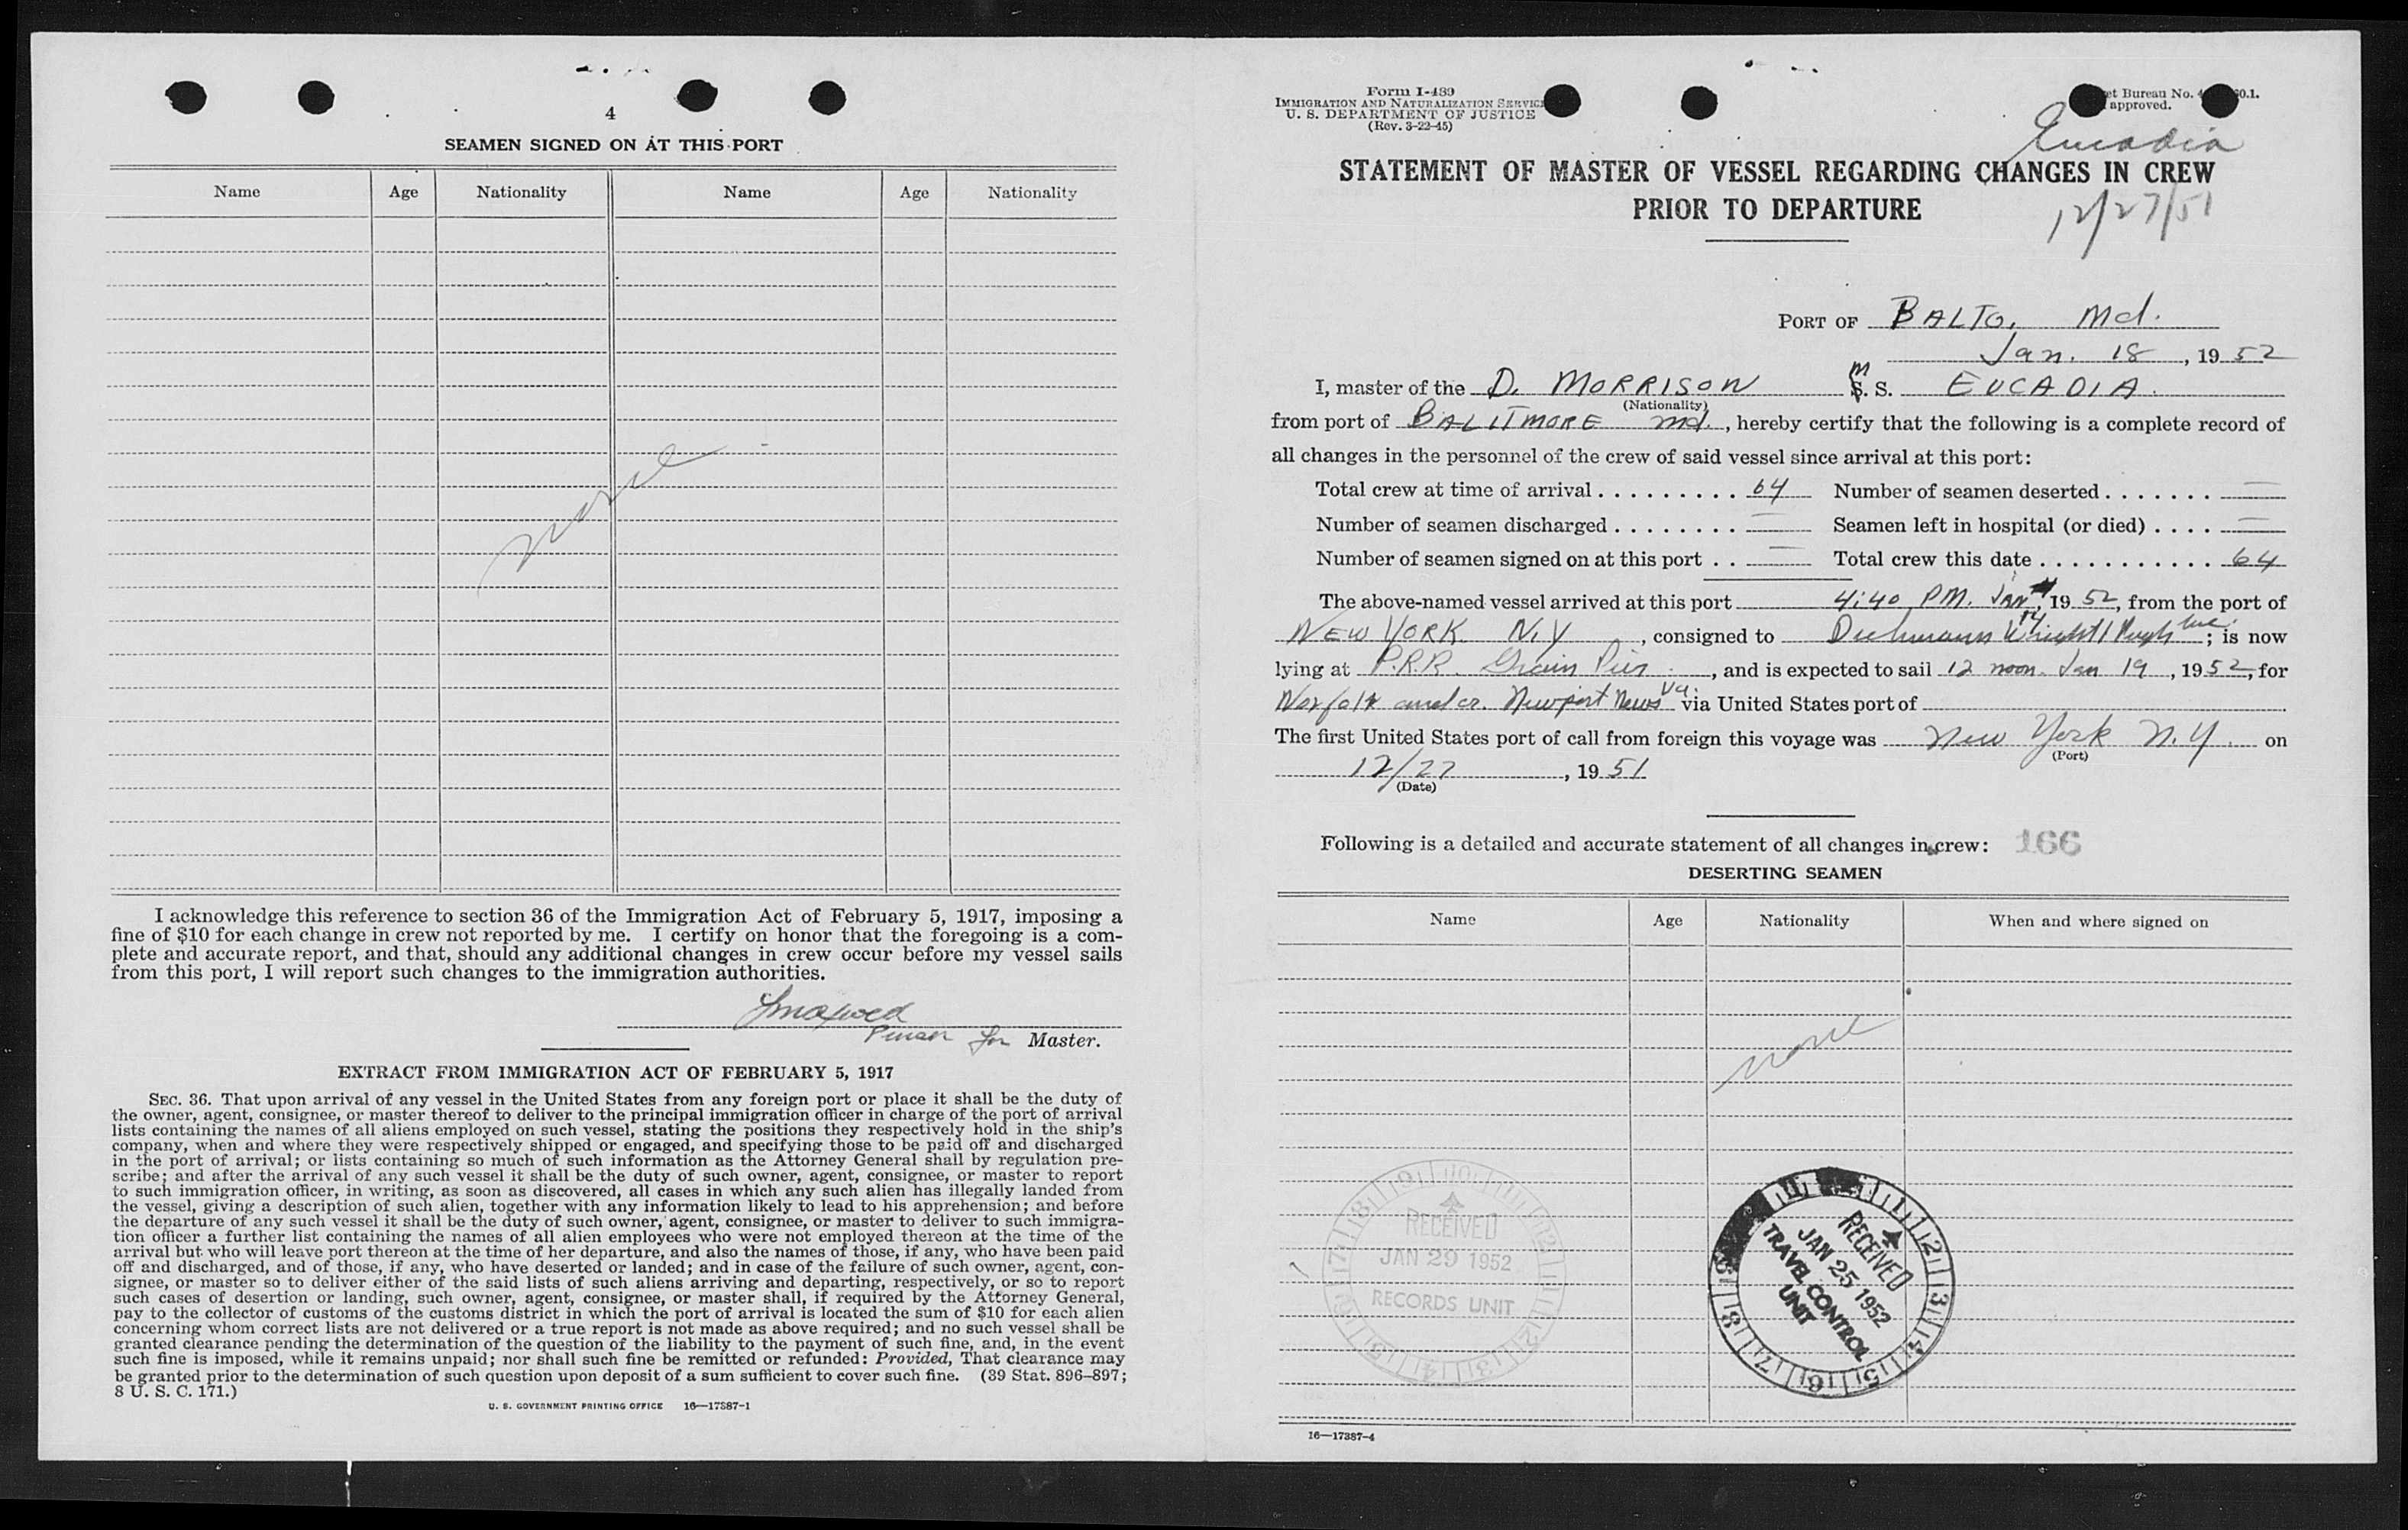 4
SEAMEN SIGNED ON AT THIS PORT
Name Age Nationality Name Age Nationality
none
I acknowledge this reference to section 36 of the Immigration Act of February 5, 1917, imposing a
fine of $10 for each change in crew not reported by me. I certify on honor that the foregoing is a com-
plete and accurate report, and that, should any additional changes in crew occur before my vessel sails
from this port, I will report such changes to the immigration authorities.
Purser for Master.
EXTRACT FROM IMMIGRATION ACT OF FEBRUARY 5, 1917
SEC. 36. That upon arrival of any vessel in the United States from any foreign port or place it shall be the duty of
the owner, agent, consignee, or master thereof to deliver to the principal immigration officer in charge of the port of arrival
lists containing the names of all aliens employed on such vessel, stating the positions they respectively hold in the ship's
company, when and where they were respectively shipped or engaged, and specifying those to be paid off and discharged
in the port of arrival; or lists containing so much of such information as the Attorney General shall by regulation pre-
scribe; and after the arrival of any such vessel it shall be the duty of such owner, agent, consignee, or master to report
to such immigration officer, in writing, as soon as discovered, all cases in which any such alien has illegally landed from
the vessel, giving a description of such alien, together with any information likely to lead to his apprehension; and before
the departure of any such vessel it shall be the duty of such owner, agent, consignee, or master to deliver to such immigra-
tion officer a further list containing the names of all alien employees who were not employed thereon at the time of the
arrival but who will leave port thereon at the time of her departure, and also the names of those, if any, who have been paid
off and discharged, and of those, if any, who have deserted or landed; and in case of the failure of such owner, agent, con-
signee, or master so to deliver either of the said lists of such aliens arriving and departing, respectively, or so to report
such cases of desertion or landing, such owner, agent, consignee, or master shall, if required by the Attorney General,
pay to the collector of customs of the customs district in which the port of arrival is located the sum of $10 for each alien
concerning whom correct lists are not delivered or a true report is not made as above required; and no such vessel shall be
granted clearance pending the determination of the question of the liability to the payment of such fine, and, in the event
such fine is imposed, while it remains unpaid; nor shall such fine be remitted or refunded: Provided, That clearance may
be granted prior to the determination of such question upon deposit of a sum sufficient to cover such fine. (39 Stat. 896-897;
8 U. S. C. 171.)
U. S. GOVERNMENT PRINTING OFFICE 16—17387-1
Form I-489
IMMIGRATION AND NATURALIZATION SERVICE
U. S. DEPARTMENT OF JUSTICE
(Rev. 3-22-45)
et Bureau No. 4 0.1.
approved.
Eucadia
STATEMENT OF MASTER OF VESSEL REGARDING CHANGES IN CREW
PRIOR TO DEPARTURE
12/27/51
PORT OF BALTO, Md.
Jan. 18, 1952
I, master of the D. MORRISON M S. S. EUCADIA.
(Nationality)
from port of BALITMORE Md., hereby certify that the following is a complete record of
all changes in the personnel of the crew of said vessel since arrival at this port:
Total crew at time of arrival 64 Number of seamen deserted —
Number of seamen discharged — Seamen left in hospital (or died) —
Number of seamen signed on at this port — Total crew this date 64
The above-named vessel arrived at this port 4:40 PM. Jan 17, 1952, from the port of
NEW YORK N.Y, consigned to Wright Pugh Inc.; is now
lying at P.R.R. Grain Pier, and is expected to sail 12 noon. Jan 19, 1952, for
Norfolk and or. Newport News Va. via United States port of
The first United States port of call from foreign this voyage was New York N.Y. on
(Port)
12/27, 1951
(Date)
Following is a detailed and accurate statement of all changes in crew: 166
DESERTING SEAMEN
Name Age Nationality When and where signed on
none
RECEIVED
JAN 29 1952
RECORDS UNIT
RECEIVED
JAN 25 1952
TRAVEL CONTROL
UNIT
16—17387-4